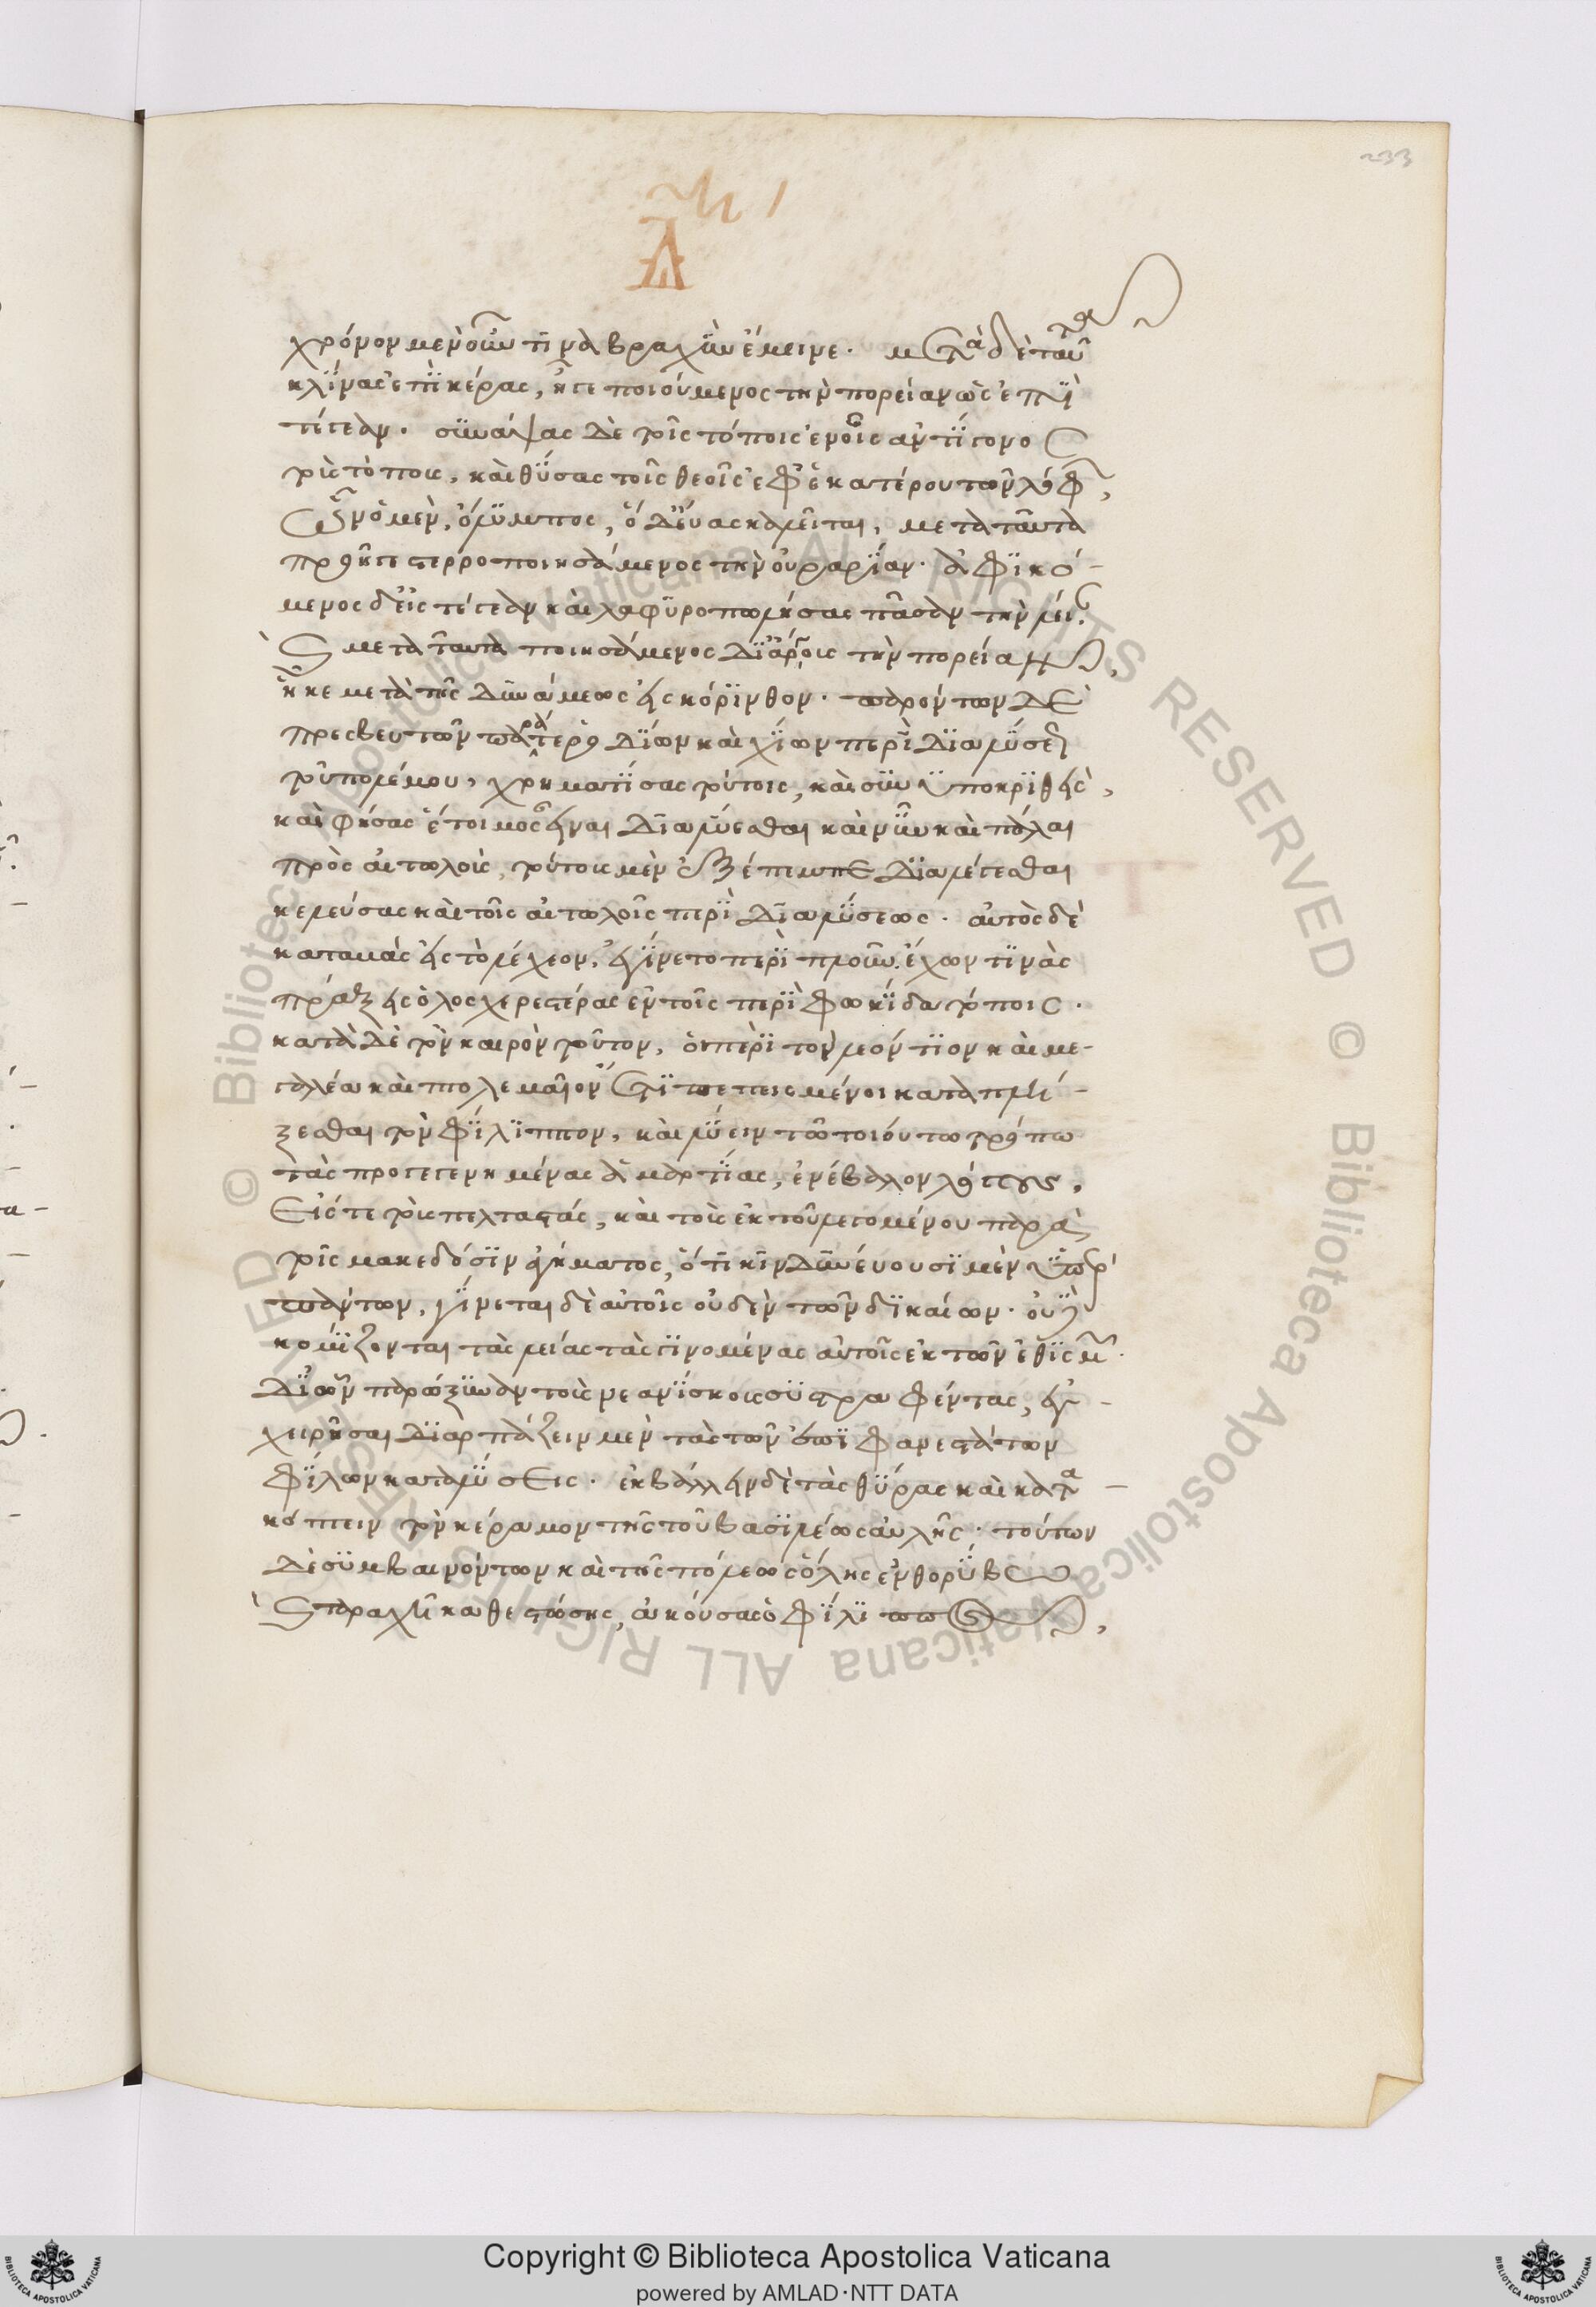 233
χρόνον μὲν οὖν τινα βραχὺν ἔμεινε. μετὰ δὲ ταῦτα
κλίνας ἐπὶ κέρας, ἦγε ποιούμενος τὴν πορείαν ὡς ἐπὶ
τέγεαν. συνάψας δὲ τοῖς τόποις ἐν οἷς ἀντίγονο
τοὺς τόπους, καὶ θύσας τοῖς θεοῖς ἐφ' ἑκατέρου τῶν λόφων,
ὧν ὁ μὲν, ὄλυμπος, ὁ δ' εὔας καλεῖται, μετὰ ταῦτα
προῆγε στερροποιησάμενος τὴν οὐραγίαν. ἀφικό-
μενος δ' εἰς τέγεαν καὶ λαφυροπωλήσας πᾶσαν τὴν λείαν
καὶ μετὰ ταῦτα ποιησάμενος δι' ἄργους τὴν πορείαν,
ἧκε μετὰ τῆς δυνάμεως εἰς κόρινθον. παρόντων δὲ
πρεσβευτῶν παρά τε ῥοδίων καὶ χίων περὶ διαλύσεως
τοῦ πολέμου, χρηματίσας τούτοις, καὶ συνυποκριθεὶς,
καὶ φήσας ἕτοιμος εἶναι διαλύεσθαι καὶ νῦν καὶ πάλαι
πρὸς αἰτωλοὺς, τούτους μὲν ἐξέπεμπε διαλέγεσθαι
κελεύσας καὶ τοῖς αἰτωλοῖς περὶ διαλύσεως. αὐτὸς δὲ
καταβὰς εἰς τὸ λέχεον, ἐγίνετο περὶ πλοῦν. ἔχων τινὰς
πράξεις ὁλοσχερεστέρας ἐν τοῖς περὶ φωκίδα τόποις.
κατὰ δὲ τὸν καιρὸν τοῦτον, οἱ περὶ τὸν λεόντιον καὶ με-
γαλέαν καὶ πτολεμαῖον ἔτι πεπεισμένοι καταπλή-
ξεσθαι τὸν φίλιππον, καὶ λύειν τῶ τοιούτω τρόπω
τὰς προγεγενημένας ἁμαρτίας, ἐνέβαλον λόγους,
εἴς τε τοὺς πελταστάς, καὶ τοὺς ἐκ τοῦ λεγομένου παρὰ
τοῖς μακεδόσιν ἀγήματος, ὅτι κινδυνεύουσι μὲν ὑπὲρ
πάντων, γίνεται δὲ αὐτοῖς οὐδὲν τῶν δικαίων. οὐδὲ
κομίζονται τὰς λείας τὰς γινομένας αὐτοῖς ἐκ τῶν ἐθισμῶν.
δι' ὧν παρώξυναν τοὺς νεανίσκους συστραφέντας, ἐγ-
χειρῆσαι διαρπάζειν μὲν τὰς τῶν ἐπιφανεστάτων
φίλων καταλύσεις. ἐκβάλλειν δὲ τὰς θύρας καὶ κατα-
κόπτειν τὸν κέραμον τῆς τοῦ βασιλέως αὐλῆς. τούτων
δὲ συμβαινόντων καὶ τῆς πόλεως ὅλης ἐν θορύβω
καὶ ταραχῆ καθεστώσης, ἀκούσας ὁ φίλιππος,
Copyright © Biblioteca Apostolica Vaticana
powered by AMLAD·NTT DATA